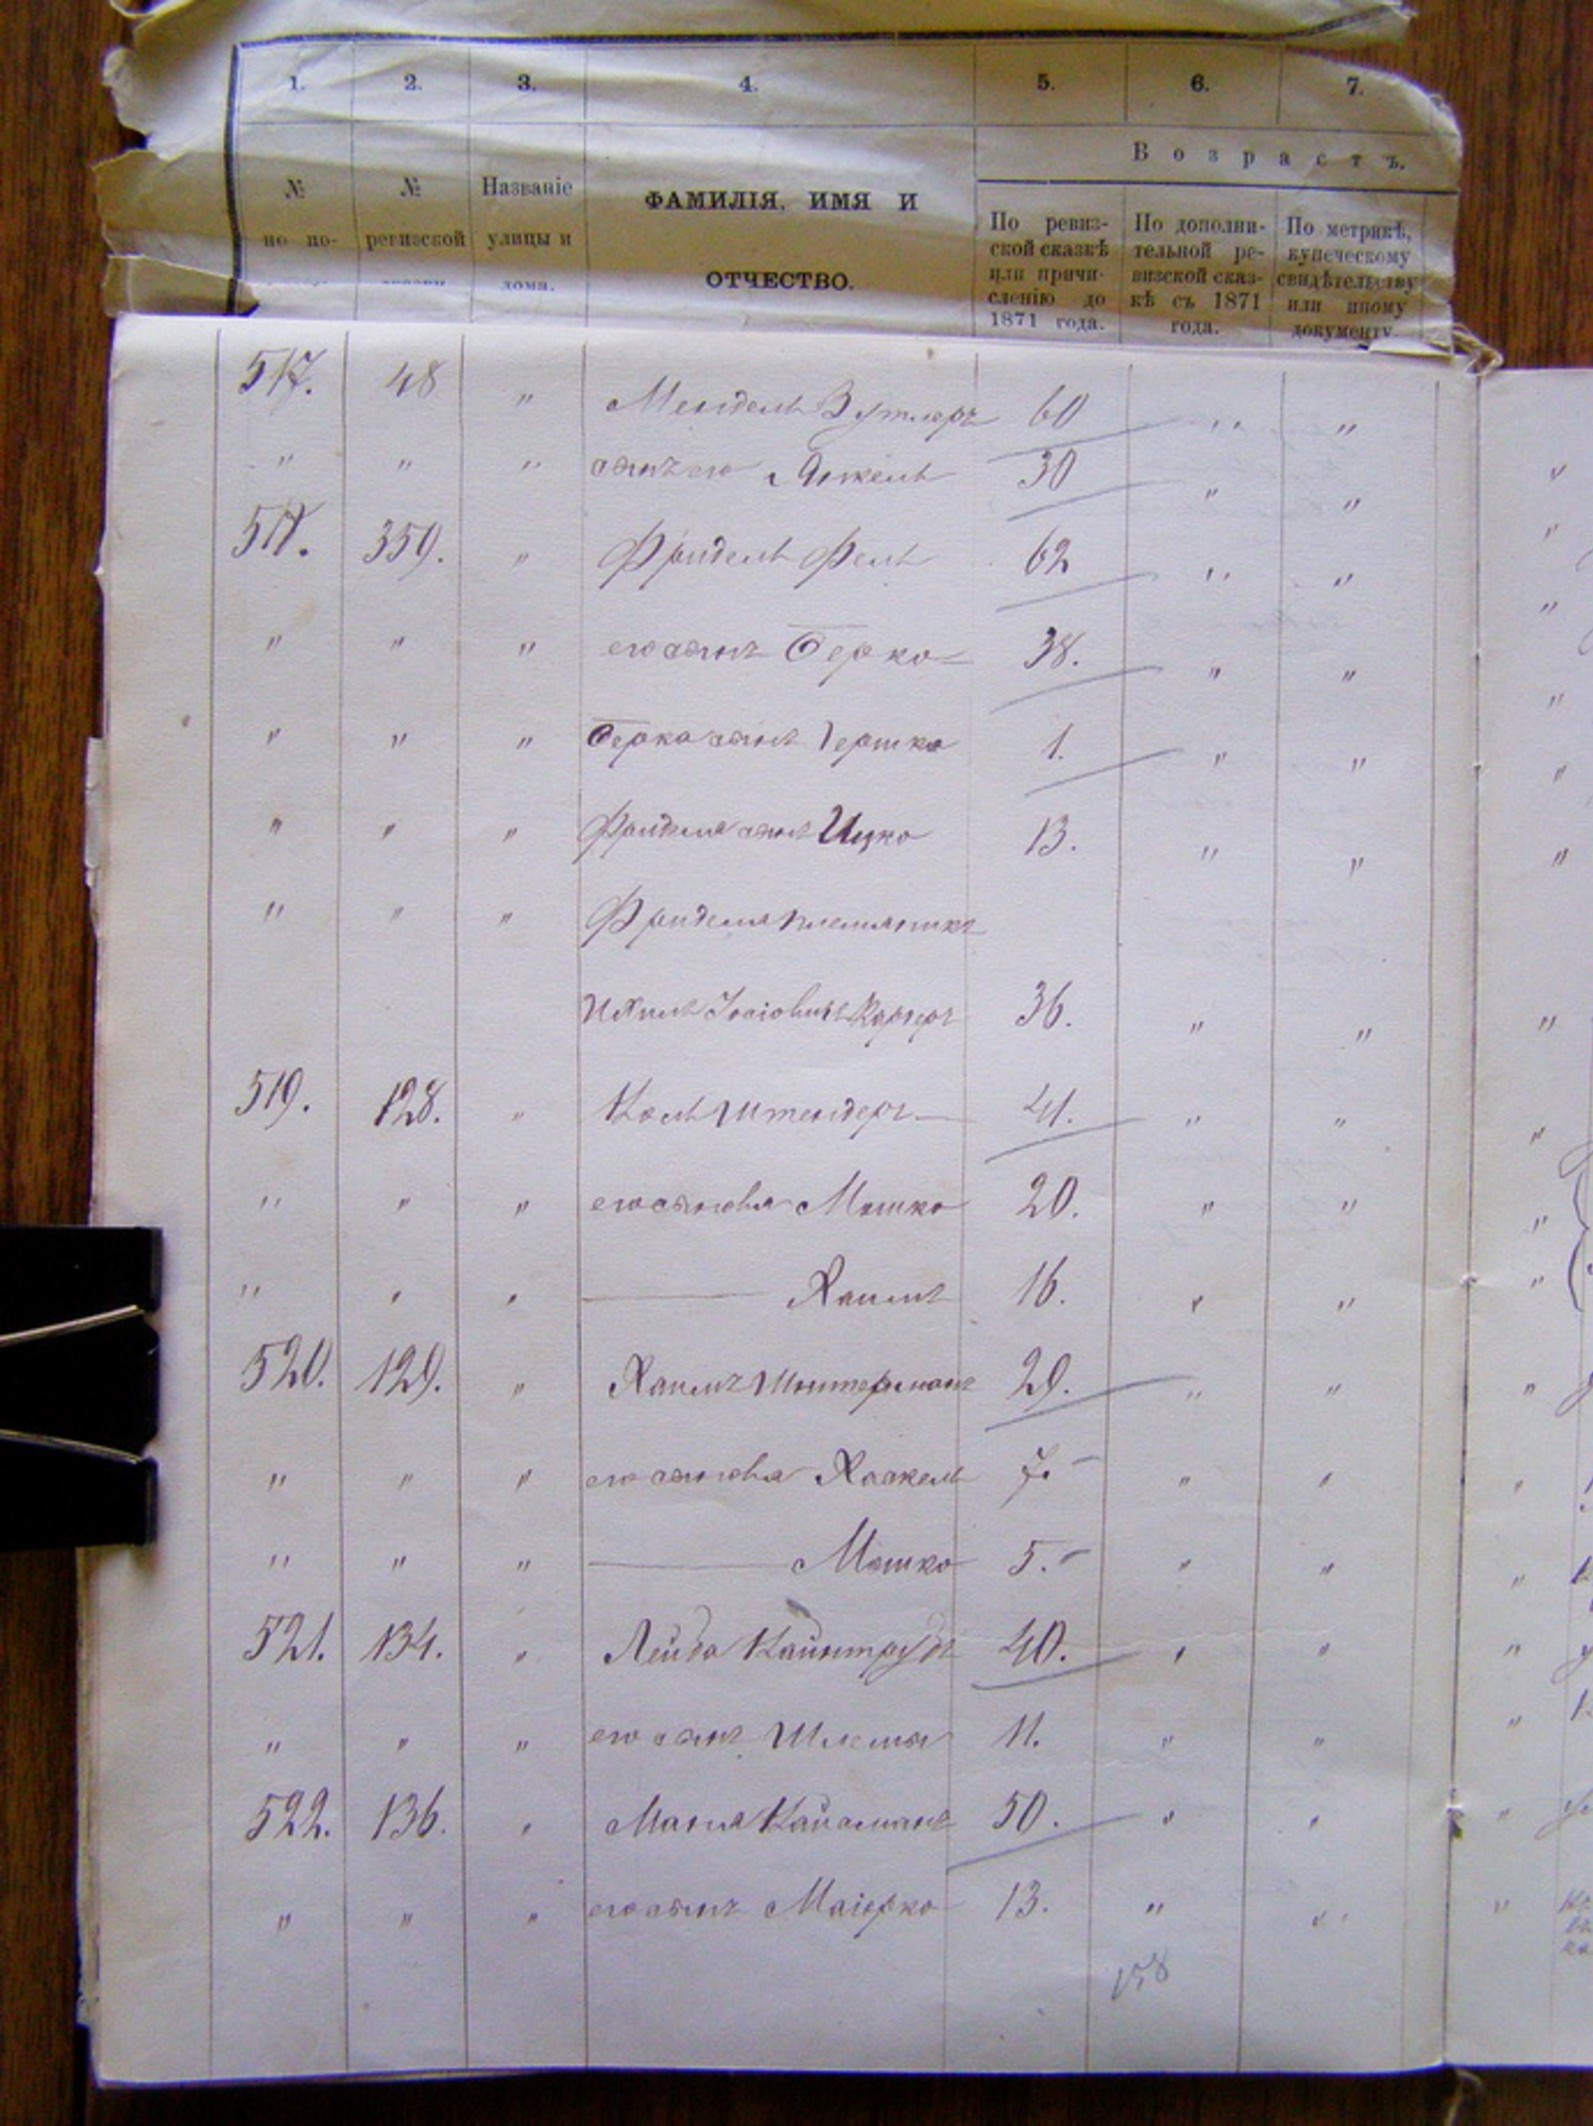 1. 2. 3. 4. 5. 6. 7.
Возрастъ.
№ по по-
№ ревизской
Названіе улицы и дома.
ФАМИЛІЯ, ИМЯ И
ОТЧЕСТВО.
По ревиз-
ской сказкѣ
или причи-
сленію до
1871 года.
По дополни-
тельной ре-
визской сказ-
кѣ съ 1871
года.
По метрикѣ,
купеческому
свидѣтельству
или иному
документу.
517. 48 " Мендель 60 " "
" " " сынъ его Янкель 30 " "
518. 359. " Фридель Фель 62 " "
" " " его сынъ Берко 38. " "
" " " Берка сынъ Гершко 1. " "
" " " Фриделя сынъ Ицко 13. " "
" " " Фриделя племяникъ
36. " "
519. 128. " Штендеръ 41. " "
" " " его сыновья Мошко 20. " "
" " " — Хаимъ 16. " "
520. 129. " Хаимъ 29. " "
" " " его сыновья Хаскель 7. " "
" " " — Мошко 5. " "
521. 134. " Лейба 40. " "
" " " его сынъ Шлема 11. " "
522. 136. " 50. " "
" " " его сынъ Маіорко 13. " "
158